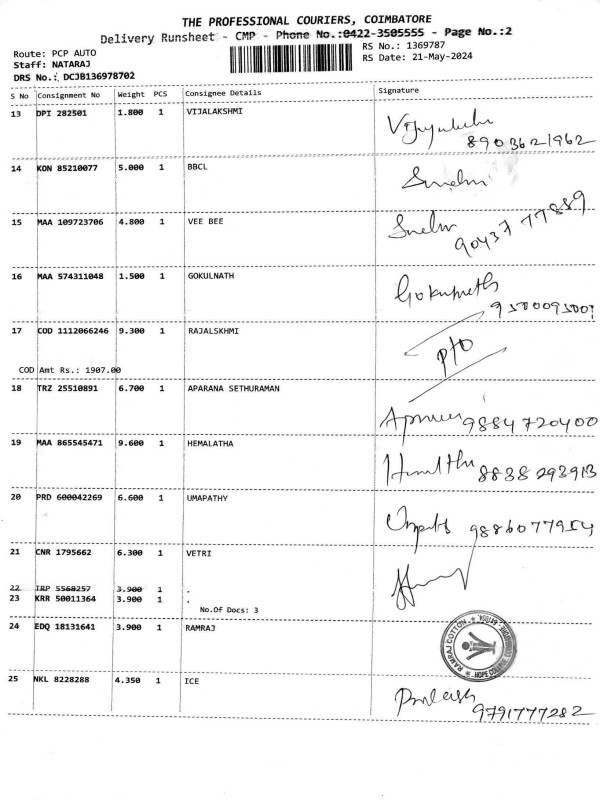 THE PROFESSIONAL COURIERS, COIMBATORE
Delivery Runsheet - CMP - Phone No.:0422-3505555 - Page No.:2
Route: PCP AUTO
Staff: NATARAJ
DRS No.: DCJB136978702
RS No.: 1369787
RS Date: 21-May-2024
S No Consignment No Weight PCS Consignee Details Signature
13 DPI 282501 1.800 1 VIJALAKSHMI
8903621962
14 KON 85210077 5.000 1 BBCL
15 MAA 109723706 4.800 1 VEE BEE
90437 77889
16 MAA 574311048 1.500 1 GOKULNATH
Gokulnath
9500095001
17 COD 1112066246 9.300 1 RAJALSKHMI
PTO
COD Amt Rs.: 1907.00
18 TRZ 25510891 6.700 1 APARANA SETHURAMAN
9884720400
19 MAA 865545471 9.600 1 HEMALATHA
8838293913
20 PRD 600042269 6.600 1 UMAPATHY
9886077954
21 CNR 1795662 6.300 1 VETRI
22 TRP 5568257 3.900 1 .
23 KRR 50011364 3.900 1 .
No.Of Docs: 3
24 EDQ 18131641 3.900 1 RAMRAJ
RAMRAJ COTTON
HOPE COLLEGE
25 NKL 8228288 4.350 1 ICE
9791777282